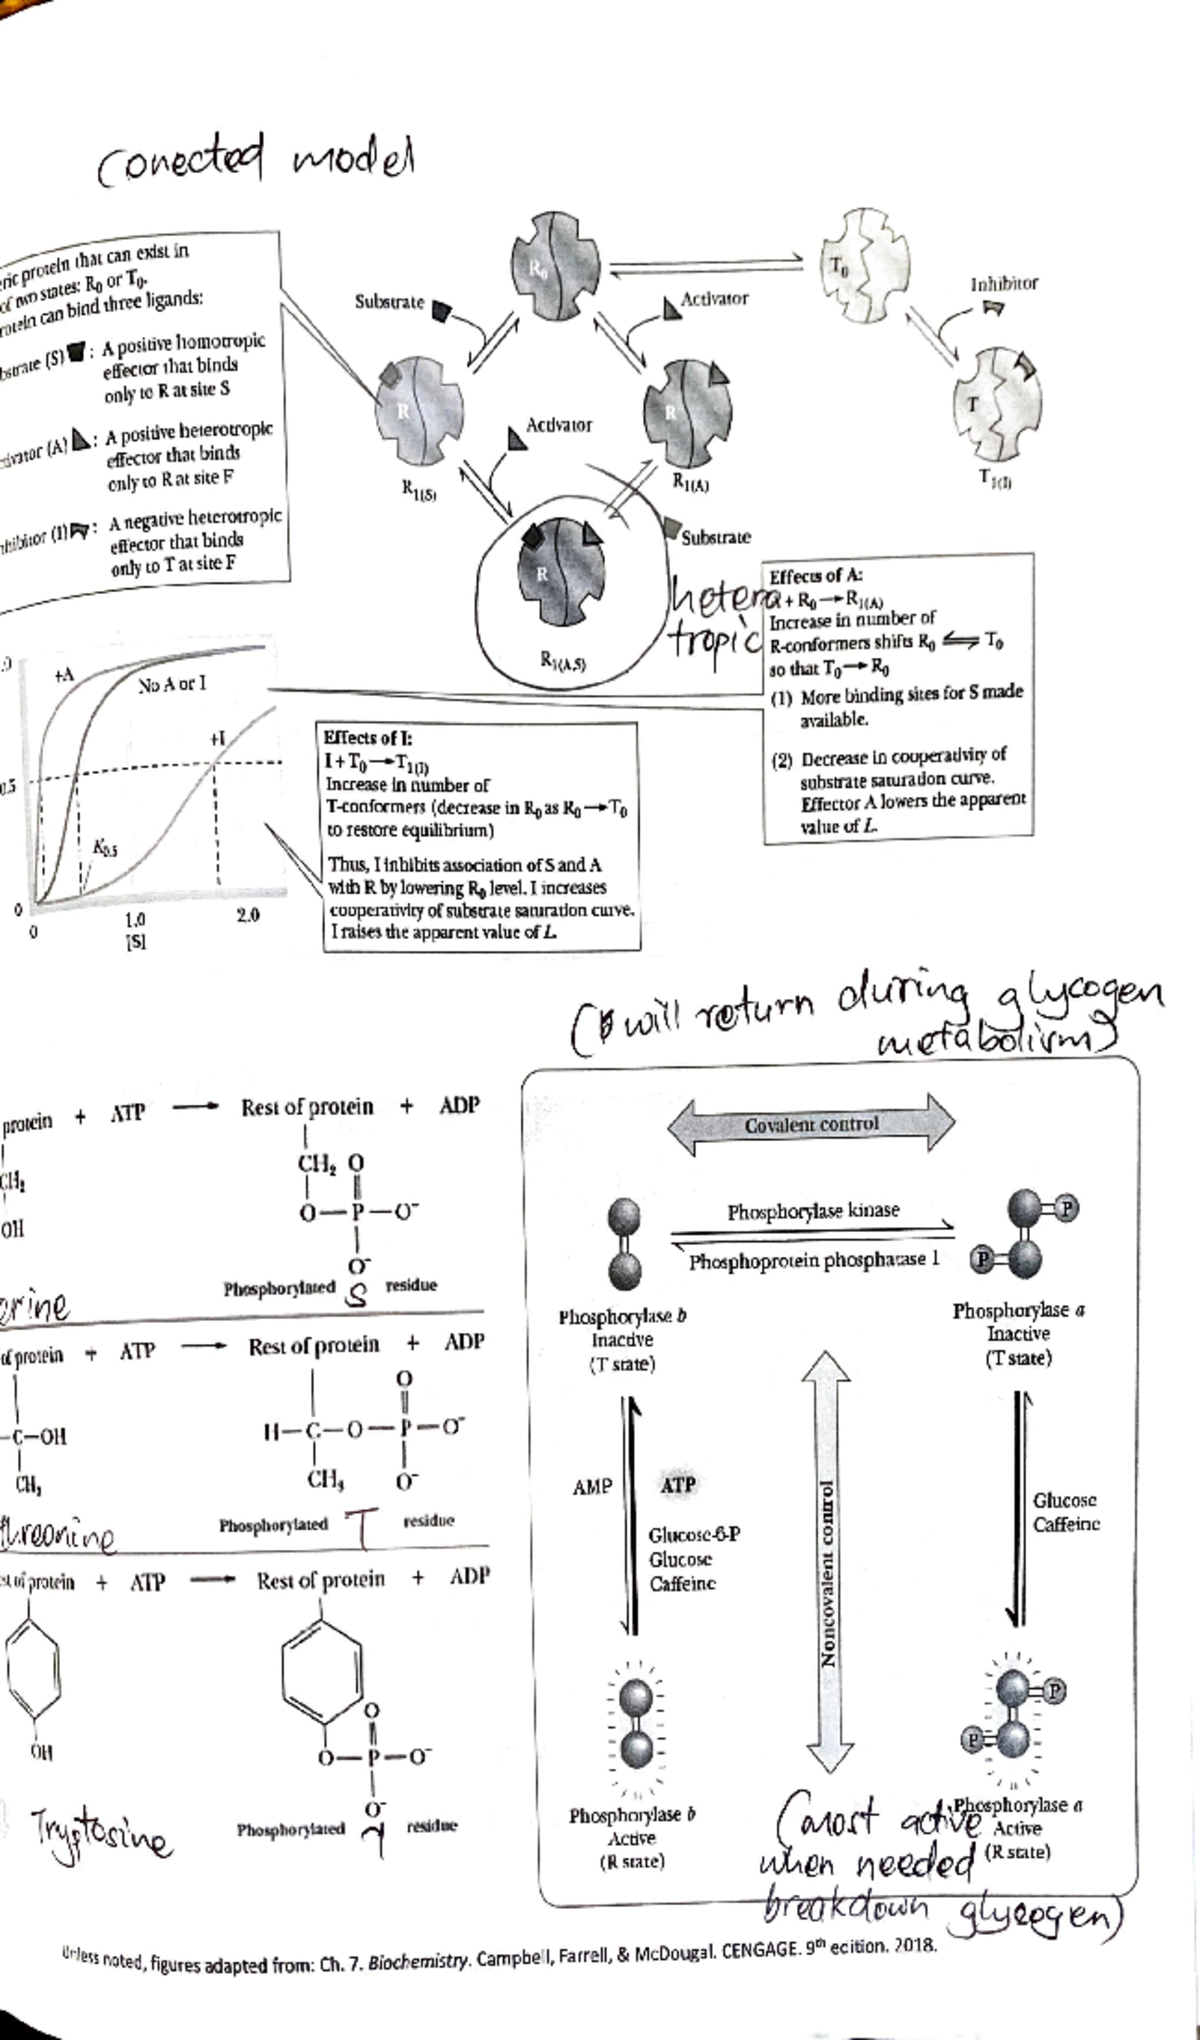 Conected model
eric protein that can exist in
of two states: R0 or T0.
rotein can bind three ligands:
bstrate (S) : A positive homotropic
effector that binds
only to R at site S
tivator (A) : A positive heterotropic
effector that binds
only to R at site F
nhibitor (I) : A negative heterotropic
effector that binds
only to T at site F
R0
T0
Substrate
Activator
Inhibitor
R
R
T
Activator
R1(S)
R1(A)
T1(I)
Substrate
R
R1(A,S)
hetera
tropic
Effects of A:
+ R0 → R1(A)
Increase in number of
R-conformers shifts R0 ⇌ T0
so that T0 → R0
(1) More binding sites for S made
available.
(2) Decrease in cooperativity of
substrate saturation curve.
Effector A lowers the apparent
value of L.
+A
No A or I
+I
0.5
K0.5
0
0
1.0
2.0
[S]
Effects of I:
I + T0 → T1(I)
Increase in number of
T-conformers (decrease in R0 as R0 → T0
to restore equilibrium)
Thus, I inhibits association of S and A
with R by lowering R0 level. I increases
cooperativity of substrate saturation curve.
I raises the apparent value of L.
(will return during glycogen
metabolism)
protein + ATP → Rest of protein + ADP
CH2
OH
CH2 O
O—P—O-
O-
Phosphorylated S residue
erine
of protein + ATP → Rest of protein + ADP
O
-C-OH
H-C-O-P-O-
CH3
CH3
O-
Phosphorylated T residue
threonine
st of protein + ATP → Rest of protein + ADP
OH
O
O—P—O-
O-
Phosphorylated Y residue
Tryptosine
Covalent control
Phosphorylase kinase
Phosphoprotein phosphatase 1
P
P
Phosphorylase b
Inactive
(T state)
Phosphorylase a
Inactive
(T state)
AMP
ATP
Glucose-6-P
Glucose
Caffeine
Noncovalent control
Glucose
Caffeine
P
P
Phosphorylase b
Active
(R state)
Phosphorylase a
Active
(R state)
(most active
when needed
breakdown glycogen)
Unless noted, figures adapted from: Ch. 7. Biochemistry. Campbell, Farrell, & McDougal. CENGAGE. 9th ecition. 2018.